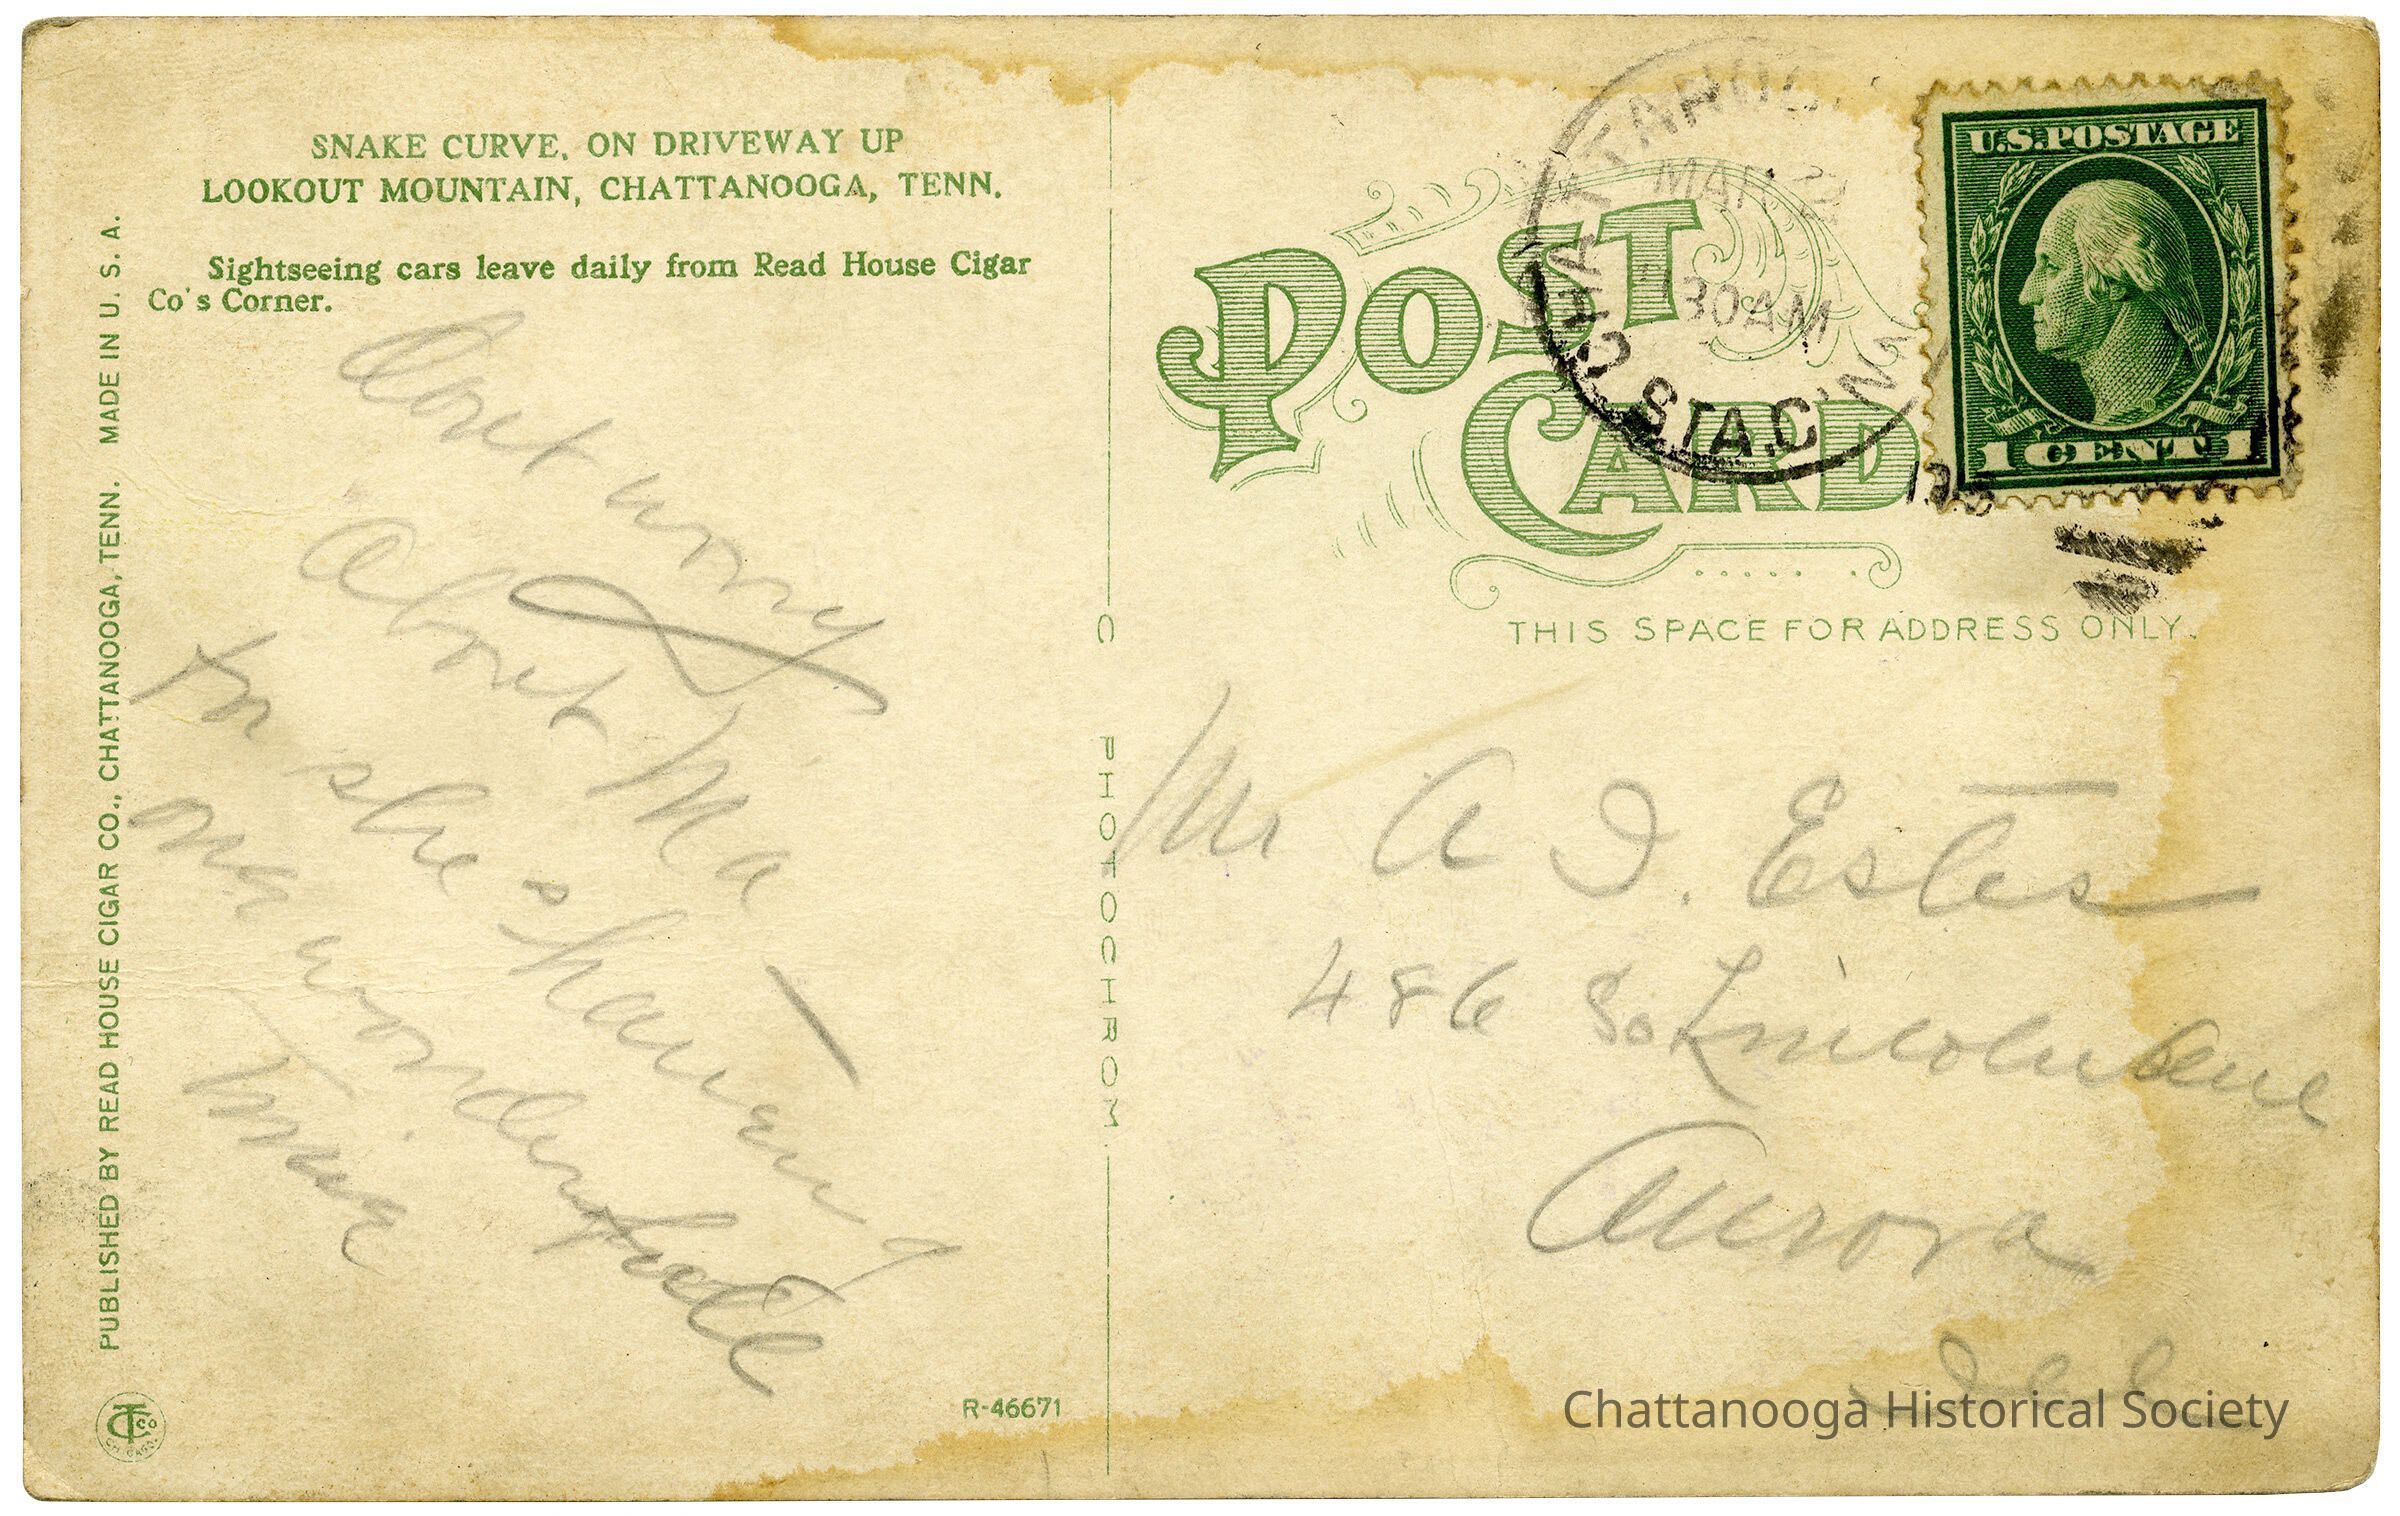 SNAKE CURVE, ON DRIVEWAY UP
LOOKOUT MOUNTAIN, CHATTANOOGA, TENN.
Sightseeing cars leave daily from Read House Cigar
Co's Corner.
PUBLISHED BY READ HOUSE CIGAR CO., CHATTANOOGA, TENN. MADE IN U. S. A.
Dont worry
about Ma
for she is having
one wonderful
time
R-46671
C PHOTOCHROM
POST
CARD
CHATTANOOG
MAR
30AM
STA.C
U.S. POSTAGE
1 CENT 1
THIS SPACE FOR ADDRESS ONLY.
Mr A I. Estes
486 So Lincoln Ave
Aurora
Ill
CT CO
CHICAGO
Chattanooga Historical Society